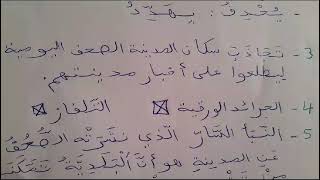 - يُحْدِقُ : يُهَدِّدُ
3- تجاذب سكان المدينة الصحف اليومية
ليطلعوا على أخبار مدينتهم.
4- الجرائد الورقية ☒ التلفاز ☒
5- النَّبَأُ السَّارُّ الَّذِي نَشَرَتْهُ الصُّحُفُ
عَنِ المدينةِ هو أَنَّ الْبَلَدِيَّةَ تَمَكَّنَتْ